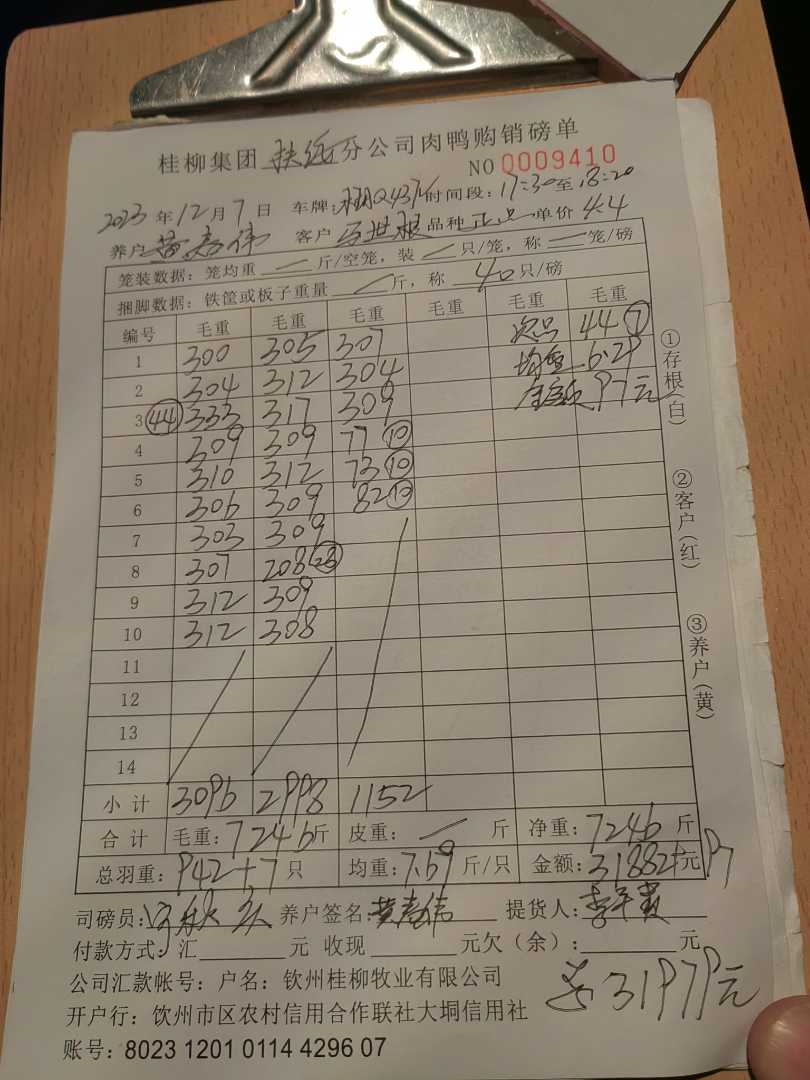 桂柳集团 分公司肉鸭购销磅单
NO 0009410
2023年12月7日 车牌: 时间段:17:30至18:20
养户 黄嘉伟 客户 品种 正品 单价 4.4
笼装数据:笼均重 — 斤/空笼,装 — 只/笼,称 — 笼/磅
捆脚数据:铁筐或板子重量 — 斤,称 40 只/磅
编号 毛重 毛重 毛重 毛重 毛重 毛重
1 300 305 307 次品 44 ⑦
2 304 312 304 均重 6.29
3 ㊹ 333 317 309 97元
4 309 309 77 ⑩
5 310 312 73 ⑩
6 306 309 82 ⑩
7 303 309
8 307 208 ㉘
9 312 309
10 312 308
11
12
13
14
小计 3096 2998 1152
合计 毛重:7246斤 皮重: — 斤 净重:7246斤
总羽重:942+7只 均重:7.69斤/只 金额:31882+元97
司磅员: 养户签名:黄嘉伟 提货人:
付款方式:汇 元 收现 元欠(余): 元
公司汇款帐号:户名:钦州桂柳牧业有限公司
开户行:饮州市区农村信用合作联社大垌信用社
账号:8023 1201 0114 4296 07
31979元
①存根(白)
②客户(红)
③养户(黄)